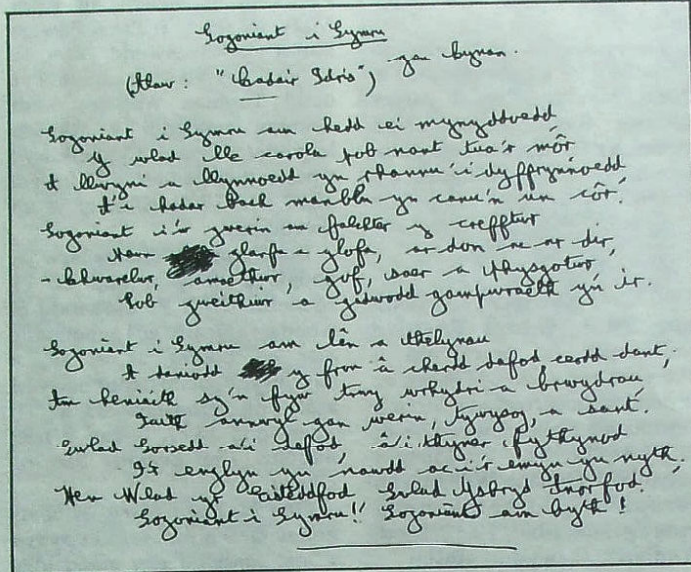 Gogoniant i Gymru
gan Cynan.
(Alaw: "Cadair Idris")
Gogoniant i Gymru am hedd ei mynyddoedd,
Y wlad lle carola pob nant tua'r môr
A llwyni a llynnoedd yn rhannu'i dyffrynnoedd
A'i hadar bach manblu yn canu'n un côr.
Gogoniant i'w gwerin am falchter y crefftwr
Hen glarfa a glofa, ar don ac ar dir,
- Chwarelwr, amaethwr, gof, saer a physgotwr,
Pob gweithiwr a gadwodd gampwraeth yn ir.
Gogoniant i Gymru am lên a thelynau
A daniodd y fron â cherdd dafod, cerdd dant,
Am heniaith sy'n fyw trwy wrhydri a brwydrau,
Iaith annwyl gan werin, tywysog, a sant.
Gwlad Gorsedd a'i defod, â'i thyner fythynod
I'r englyn yn nawdd ac i'r emyn yn nyth.
Hen Wlad yr Eisteddfod Gwlad Ysbryd Anorfod.
Gogoniant i Gymru!! Gogoniant am byth!